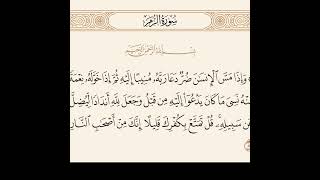 سُورَةُ الزُّمَرِ
بِسْمِ اللَّهِ الرَّحْمَٰنِ الرَّحِيمِ
وَإِذَا مَسَّ الْإِنسَٰنَ ضُرٌّ دَعَا رَبَّهُۥ مُنِيبًا إِلَيْهِ ثُمَّ إِذَا خَوَّلَهُۥ نِعْمَةً
مِّنْهُ نَسِىَ مَا كَانَ يَدْعُوٓا۟ إِلَيْهِ مِن قَبْلُ وَجَعَلَ لِلَّهِ أَندَادًا لِّيُضِلَّ
عَن سَبِيلِهِۦ ۚ قُلْ تَمَتَّعْ بِكُفْرِكَ قَلِيلًا ۖ إِنَّكَ مِنْ أَصْحَٰبِ النَّارِ